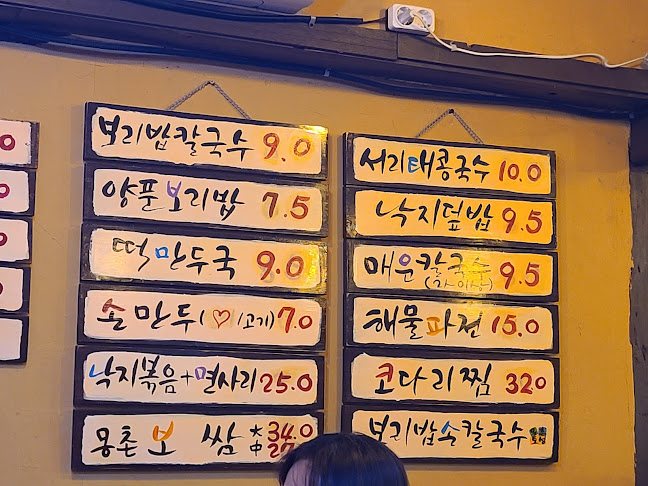 보리밥칼국수 9.0
양푼보리밥 7.5
떡만두국 9.0
손만두(♡/고기) 7.0
낙지볶음+면사리 25.0
몽촌보쌈 大 34.0
中
서리태콩국수 10.0
낙지덮밥 9.5
매운칼국수 9.5
(2人이상)
해물파전 15.0
코다리찜 320
보리밥손칼국수
0
0
0
0